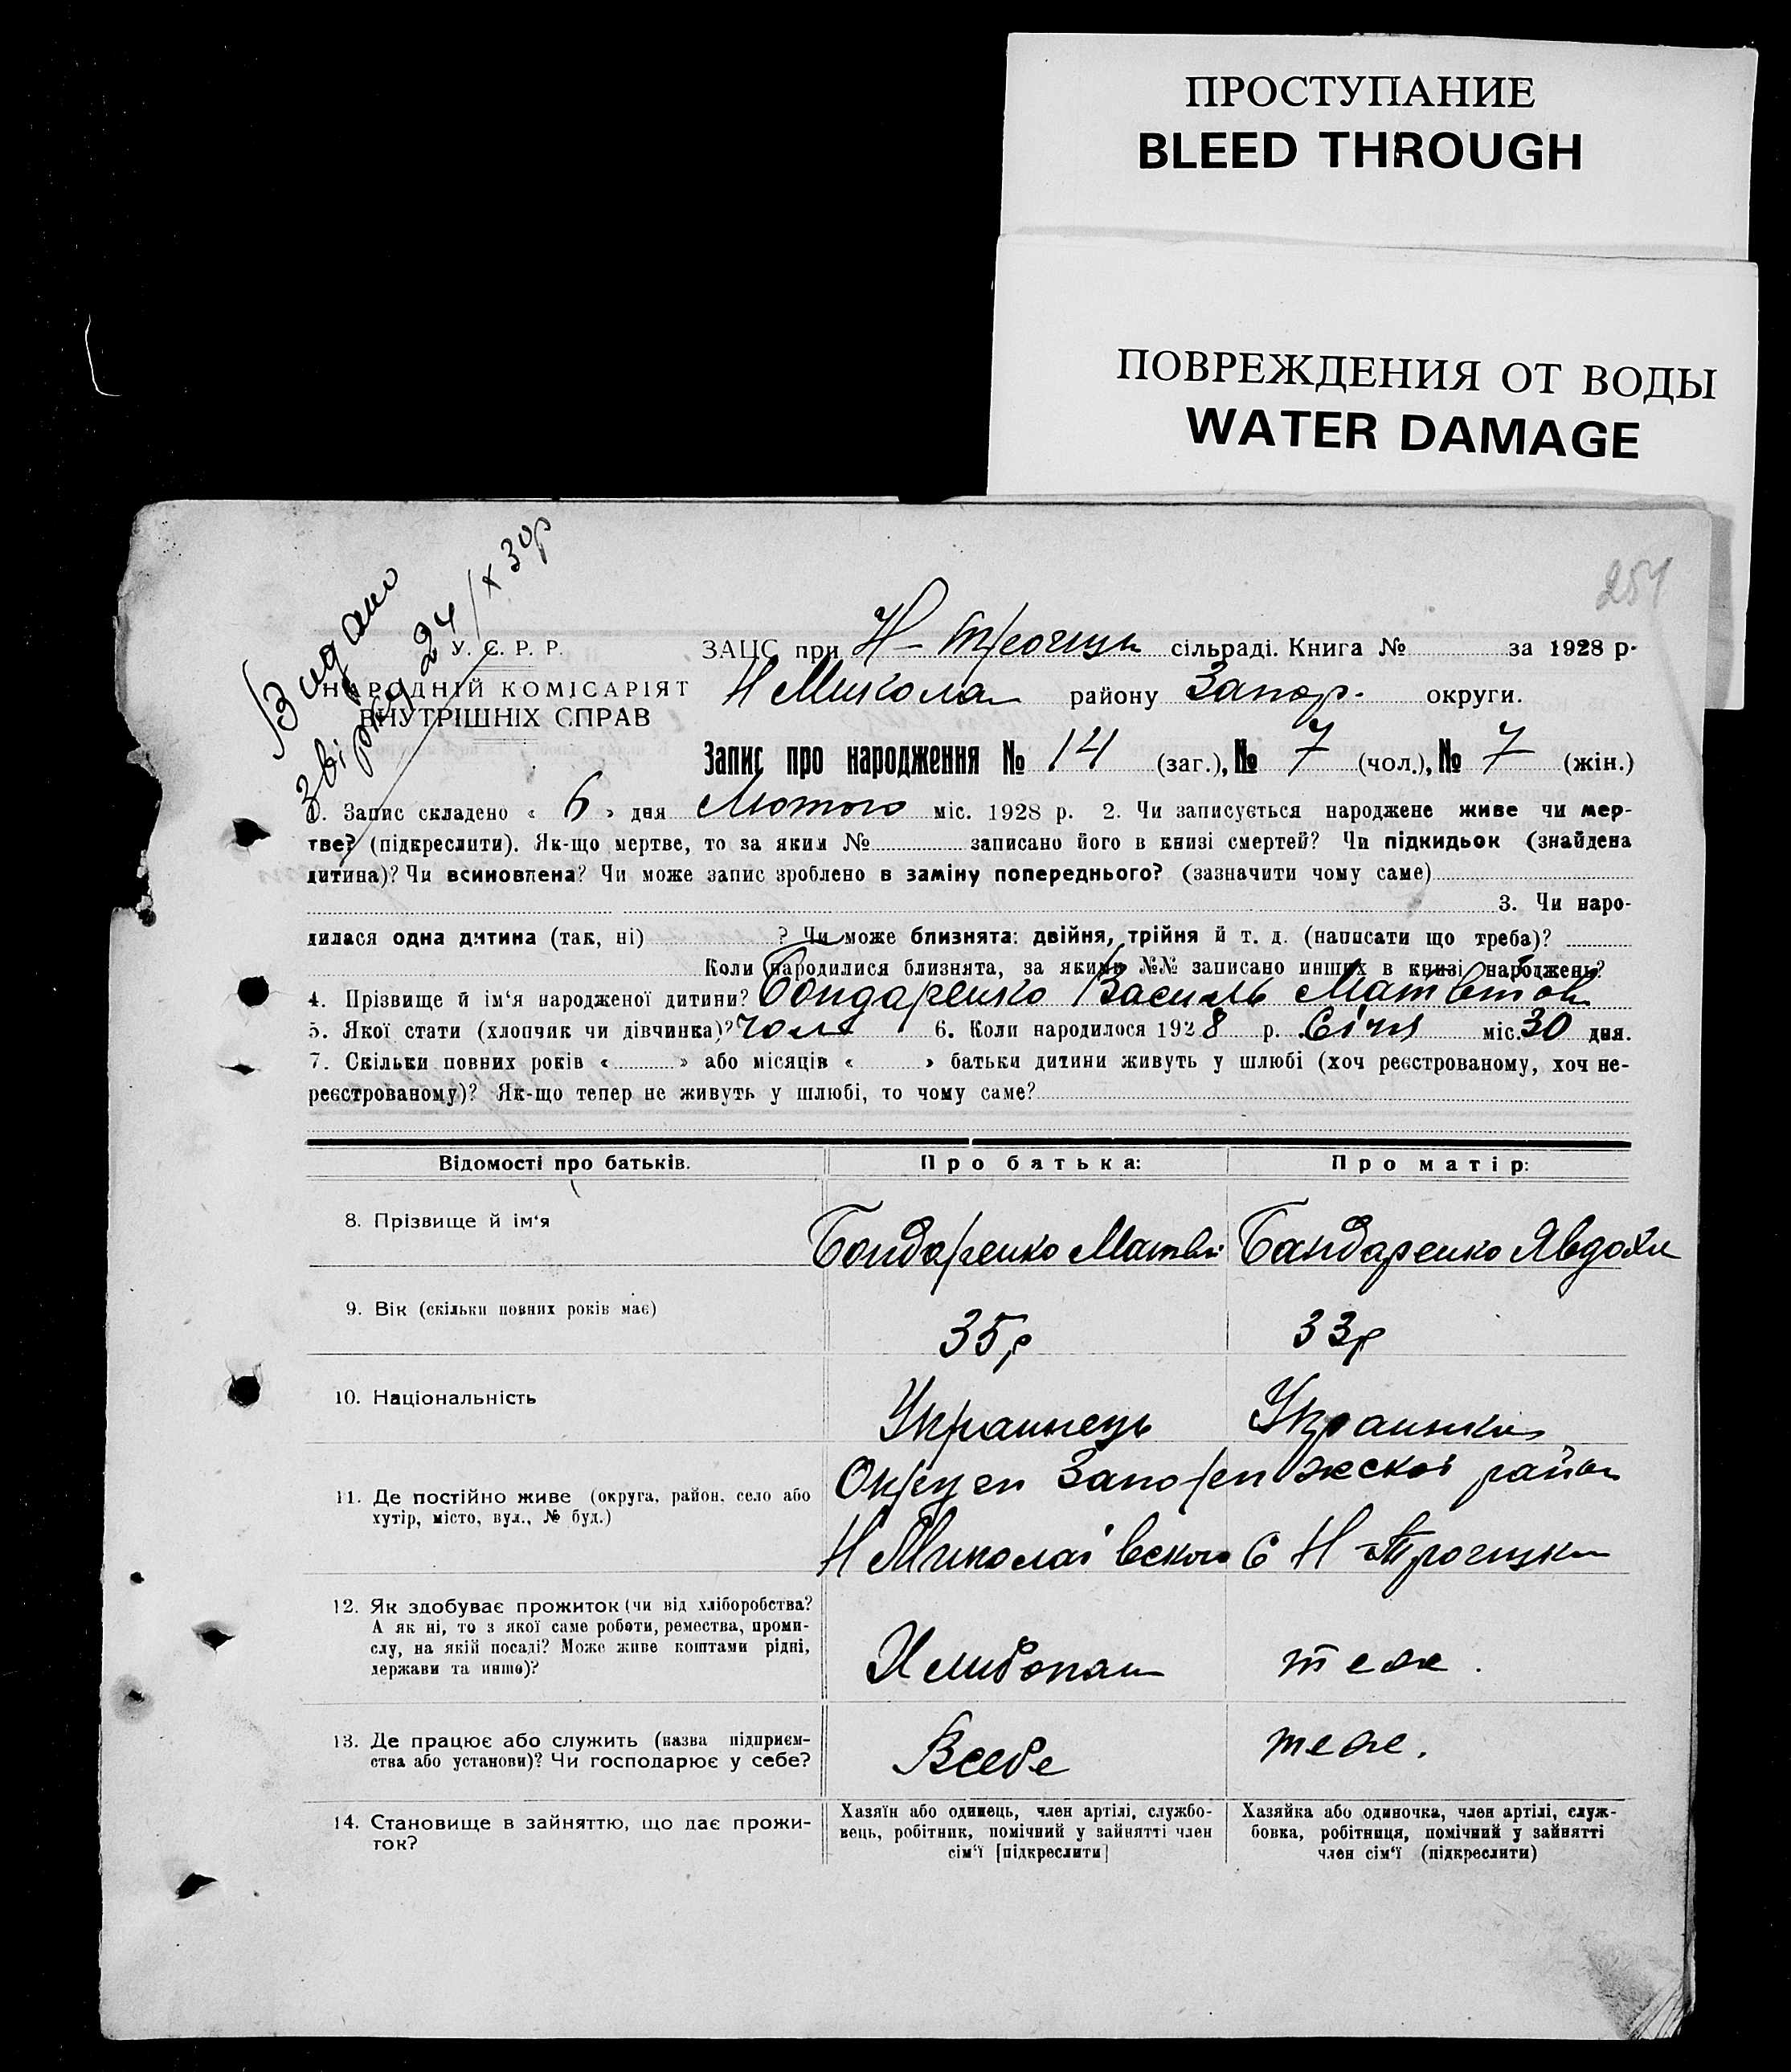 ПРОСТУПАНИЕ
BLEED THROUGH
ПОВРЕЖДЕНИЯ ОТ ВОДЫ
WATER DAMAGE
251
Видано
звірка 24/X 30р
У. С. Р. Р.
НАРОДНІЙ КОМІСАРІЯТ
ВНУТРІШНІХ СПРАВ
ЗАЦС при Н-Троицк сільраді. Книга № за 1928 р.
Н Микола району Запор. округи.
Запис про народження № 14 (заг.), № 7 (чол.), № 7 (жін.)
1. Запис складено « 6 » дня Лютого міс. 1928 р. 2. Чи записується народжене живе чи мер-
тве? (підкреслити). Як-що мертве, то за яким № записано його в книзі смертей? Чи підкидьок (знайдена
дитина)? Чи всиновлена? Чи може запис зроблено в заміну попереднього? (зазначити чому саме)
3. Чи наро-
дилася одна дитина (так, ні) ? Чи може близнята: двійня, трійня й т. д. (написати що треба)?
Коли народилися близнята, за якими №№ записано инших в книзі народжень?
4. Прізвище й ім'я народженої дитини? Бондаренко Василь Матвєтов
5. Якої стати (хлопчик чи дівчинка)? чол 6. Коли народилося 1928 р. Січня міс. 30 дня.
7. Скільки повних років « » або місяців « » батьки дитини живуть у шлюбі (хоч реєстрованому, хоч не-
реєстрованому)? Як-що тепер не живуть у шлюбі, то чому саме?
Відомості про батьків. Про батька: Про матір:
8. Прізвище й ім'я Бондаренко Матвій Бандаренко Явдохи
9. Вік (скільки повних років має) 35р 33р
10. Національність Украинець Украинка
11. Де постійно живе (округа, район, село або
хутір, місто, вул., № буд.)
Округи Запорижскоі район
Н Миколаівского С Н-Троицки
12. Як здобуває прожиток (чи від хліборобства?
А як ні, то з якої саме роботи, ремества, проми-
слу, на якій посаді? Може живе коштами рідні,
держави та инше)?
Хлибопаш теж.
13. Де працює або служить (назва підприєм-
ства або установи)? Чи господарює у себе?
Всебе теже.
14. Становище в зайняттю, що дає прожи-
ток?
Хазяїн або одинець, член артілі, службо-
вець, робітник, помічний у зайнятті член
сім'ї [підкреслити]
Хазяйка або одиночка, член артілі, служ-
бовка, робітниця, помічний у зайнятті
член сім'ї (підкреслити)